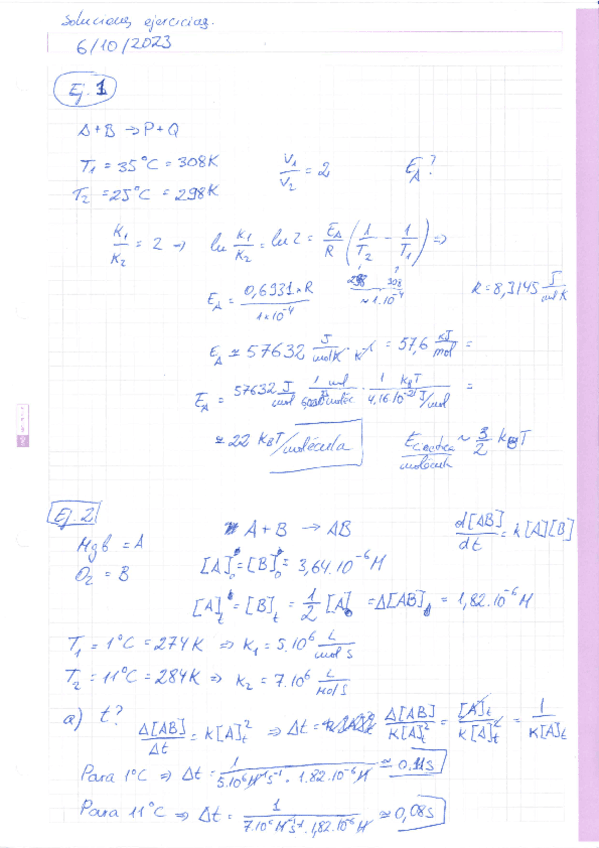 Soluciones ejercicios.
6/10/2023
Ej. 1
A + B → P + Q
T1 = 35°C = 308K V1/V2 = 2 EA?
T2 = 25°C = 298K
K1/K2 = 2 → ln K1/K2 = ln 2 = EA/R (1/T2 - 1/T1) ⇒
298 308
EA = 0,6931 × R / 1×10⁻⁴ ≈ 1·10⁻⁴ R = 8,3145 J/mol K
EA ≃ 57632 J/molK · K⁻¹ = 57,6 kJ/mol =
EA = 57632 J/mol · 1 mol / molec · 1 KBT / 4,16·10⁻²¹ J/mol =
≃ 22 KBT/molécula Ecinética/molécula ~ 3/2 KBT
Ej. 2
A + B → AB d[AB]/dt = k[A][B]
Mgb = A
O2 = B
[A]0 = [B]0 = 3,64·10⁻⁶ M
[A]t = [B]t = 1/2 [A]0 = Δ[AB] = 1,82·10⁻⁶ M
T1 = 1°C = 274K ⇒ K1 = 5·10⁶ L/mol s
T2 = 11°C = 284K ⇒ K2 = 7·10⁶ L/mol s
a) t? Δ[AB]/Δt = K[A]t² ⇒ Δt = Δ[AB]/K[A]t² = [A]t/K[A]t² = 1/K[A]t
Para 1°C ⇒ Δt = 1/5·10⁶ M⁻¹s⁻¹ · 1,82·10⁻⁶ M ≃ 0,11s
Para 11°C ⇒ Δt = 1/7·10⁶ M⁻¹s⁻¹ · 1,82·10⁻⁶ M ≃ 0,08s